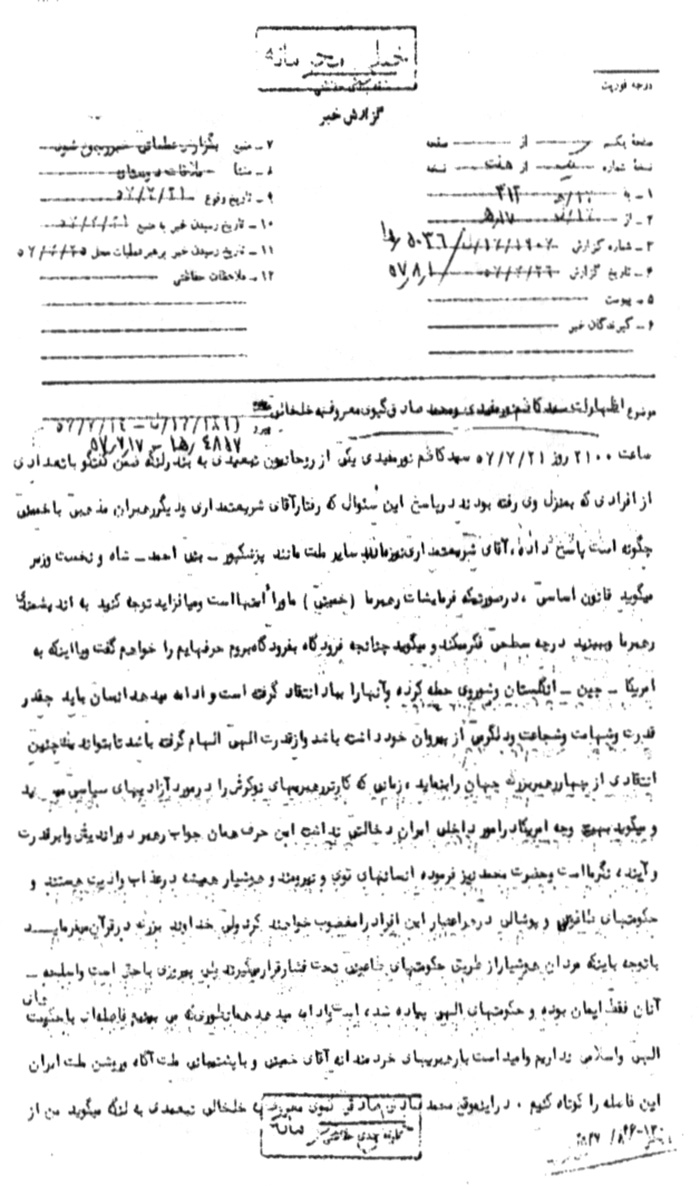 خیلی محرمانه
طبقه بندی حفاظتی
گزارش خبر
درجه فوریت
صفحهٔ یکم از صفحه
نسخهٔ شماره از هفت نسخه
۱ ـ به ۳۱۲
۲ ـ از ۵۱۷
۳ ـ شماره گزارش
۴ ـ تاریخ گزارش ۵۷/۸/۱
۵ ـ پیوست
۶ ـ گیرندگان خبر
۷ ـ منبع
۸ ـ منشأ ملاقات دوستان
۹ ـ تاریخ وقوع ۵۷/۷/۲۱
۱۰ ـ تاریخ رسیدن خبر به منبع ۵۷/۷/۲۱
۱۱ ـ تاریخ رسیدن خبر برهبر عملیات محل ۵۷/۷/۲۵
۱۲ ـ ملاحظات حفاظتی
موضوع اظهارات سید کاظم نورمفیدی و محمد صادق گیوی معروف به خلخالی
پیرو
ساعت ۲۱۰۰ روز ۵۷/۷/۲۱ سید کاظم نورمفیدی یکی از روحانیون تبعیدی به بندرلنگه ضمن گفتگو با تعدادی
از افرادی که بمنزل وی رفته بودند در پاسخ این سئوال که رفتار آقای شریعتمداری و دیگر رهبران مذهبی با خمینی
چگونه است پاسخ داده، آقای شریعتمداری نیز مانند سایر ملت مانند پزشکپور ـ بنی احمد ـ شاه و نخست وزیر
میگوید قانون اساسی ، در صورتیکه فرمایشات رهبر ما (خمینی) ماوراً اینها است و میافزاید توجه کنید به اندیشه‌های
رهبر ما و ببینید در چه سطحی فکر میکند و میگوید چنانچه فرودگاه بفرودگاه بروم حرفهایم را خواهم گفت و یا اینکه به
امریکا ـ چین ـ انگلستان و شوروی حمله کرده و آنها را بباد انتقاد گرفته است و ادامه میدهد انسان باید چقدر
قدرت و شهامت و شجاعت و دلگرمی از پیروان خود داشته باشد و از قدرت الهی الهام گرفته باشد تا بتواند چنین
انتقادی از چهار رهبر بزرگ جهان را بنماید ، زمانی که کارتر رهبریهای نوکرش را در مورد آزادیهای سیاسی
و میگوید بهیچ وجه امریکا در امور داخلی ایران دخالتی نداشته این حرف همان جواب رهبر دوراندیش و ابرقدرت
و آینده نگر ما است و حضرت محمد نیز فرموده انسانهای قوی و نیرومند و هوشیار همیشه در عذاب و اذیت هستند و
حکومتهای طاغوتی و پوشالی در هر اعتبار این افراد را مغضوب خواهند کرد ولی خداوند بزرگ در قرآن میفرماید
با توجه باینکه مردان هوشیار از طریق حکومتهای طاغوتی تحت فشار قرار میگیرند ولی پیروزی با حق است و اسلحه ـ
آنان فقط ایمان بوده و حکومتهای الهی پیاده شده است و ادامه میدهد همانطوریکه می بینیم فاصله‌ای با حکومت
الهی و اسلامی نداریم و امید است با رهبریهای خردمندانه آقای خمینی و با پشتیبانی ملت آگاه و روشن ملت ایران
این فاصله را کوتاه کنیم . در این موقع محمد صادق صادقی گیوی معروف به خلخالی تبعیدی به لنگه میگوید من از
خیلی محرمانه
طبقه بندی حفاظتی